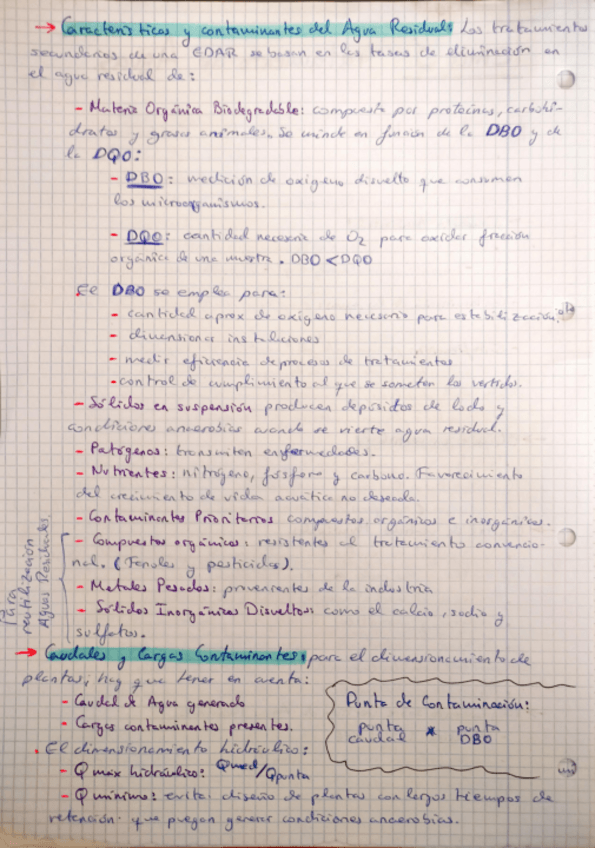 → Características y contaminantes del Agua Residual: Los tratamientos
secundarios de una EDAR se basan en las tasas de eliminación en
el agua residual de:
- Materia Orgánica Biodegradable: compuesta por proteínas, carbohi-
dratos y grasas animales. Se mide en función de la DBO y de
la DQO:
- DBO: medición de oxígeno disuelto que consumen
los microorganismos.
- DQO: cantidad necesaria de O2 para oxidar fracción
orgánica de una muestra. DBO < DQO
El DBO se emplea para:
- cantidad aprox de oxígeno necesario para estabilización.
- dimensionar instalaciones
- medir eficiencia de procesos de tratamientos
- control de cumplimiento al que se someten los vertidos.
- Sólidos en suspensión producen depósitos de lodo y
condiciones anaerobias cuando se vierte agua residual.
- Patógenos: transmiten enfermedades.
- Nutrientes: nitrógeno, fósforo y carbono. Favorecimiento
del crecimiento de vida acuática no deseada.
- Contaminantes Prioritarios compuestos orgánicos e inorgánicos.
- Compuestos orgánicos: resistentes al tratamiento convencio-
nal. (Fenoles y pesticidas).
- Metales Pesados: provenientes de la industria
- Sólidos Inorgánicos Disueltos: como el calcio, sodio y
sulfatos.
Para
reutilización
Aguas Residuales.
→ Caudales y Cargas Contaminantes: para el dimensionamiento de
plantas, hay que tener en cuenta:
- Caudal de Agua generado
- Cargas contaminantes presentes.
Punta de Contaminación:
punta caudal * punta DBO
. El dimensionamiento hidráulico:
- Q max hidráulico: Qmed/Qpunta
- Q mínimo: evita diseño de plantas con largos tiempos de
retención que puegan generar condiciones anaerobias.